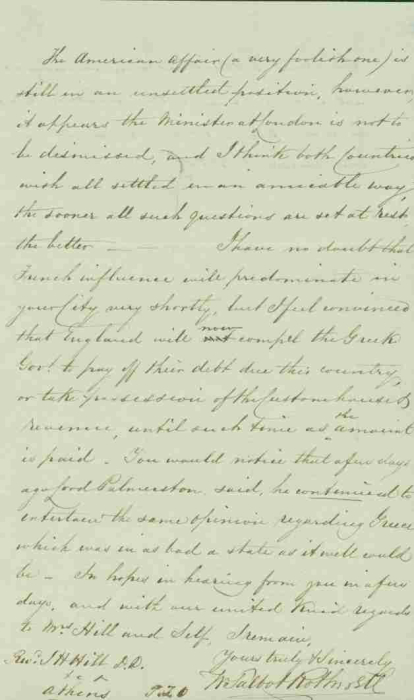 The American affair (a very foolish one) is
still in an unsettled position, however
it appears the Minister at London is not to
be dismissed, and I think both Countries
wish all settled in an amicable way
the sooner all such questions are set at rest
the better — I have no doubt that
French influence will predominate in
your City very shortly, but I feel convinced
that England will now compel the Greek
Govt. to pay off their debt due this country,
or take possession of the Custom house &
revenue, until such time as the amount
is paid. You would notice that a few days
ago Lord Palmerston said, he continued to
entertain the same opinion regarding Greece
which was in as bad a state as it well could
be - In hopes in hearing from you in a few
days, and with our united kind regards
to Mrs Hill and Self, I remain,
Yours truly & Sincerely
Revd. J H Hill D.D.
Athens